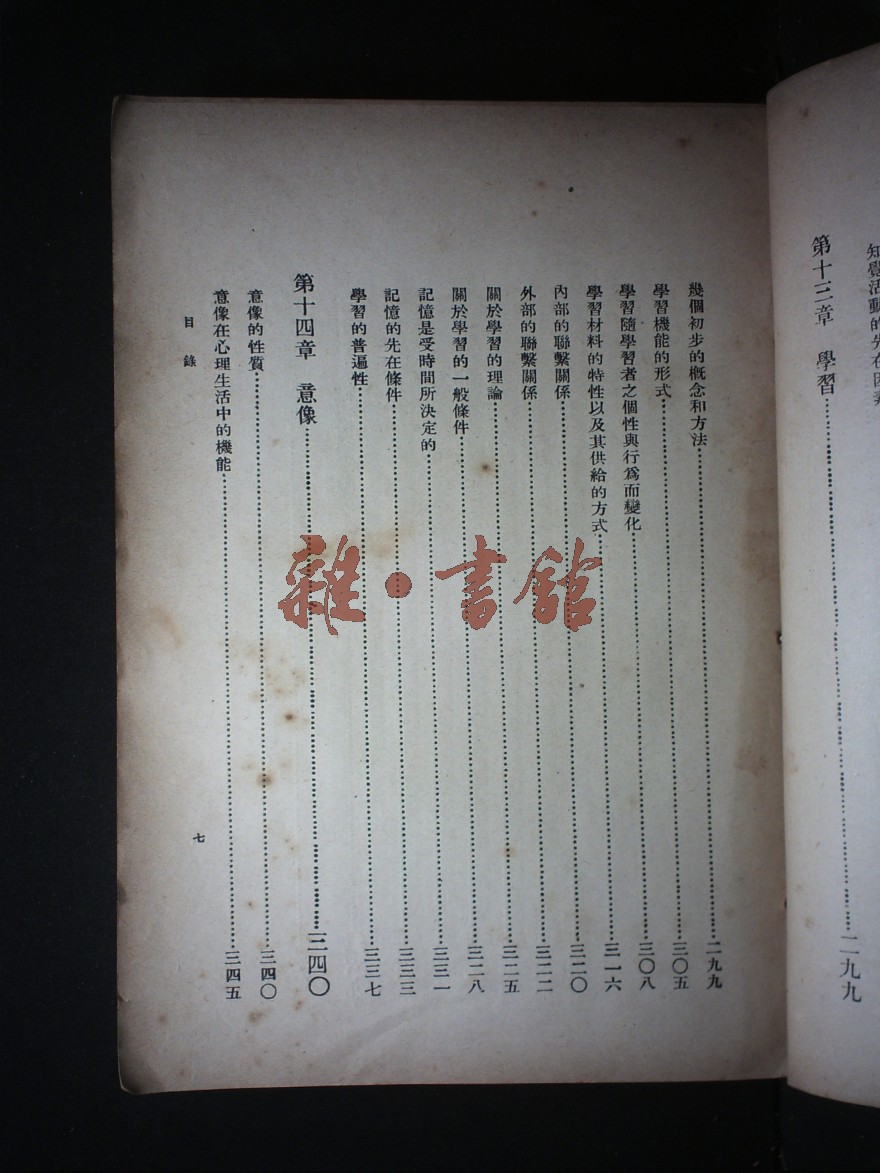 知覺活動的先在因素
第十三章 學習……二九九
幾個初步的概念和方法……二九九
學習機能的形式……三〇五
學習隨學習者之個性與行爲而變化……三〇八
學習材料的特性以及其供給的方式……三一六
內部的聯繫關係……三二〇
外部的聯繫關係……三二二
關於學習的理論……三二五
關於學習的一般條件……三二八
記憶是受時間所決定的……三三一
記憶的先在條件……三三三
學習的普遍性……三三七
第十四章 意像……三四〇
意像的性質……三四〇
意像在心理生活中的機能……三四五
目錄
七
雜·書館